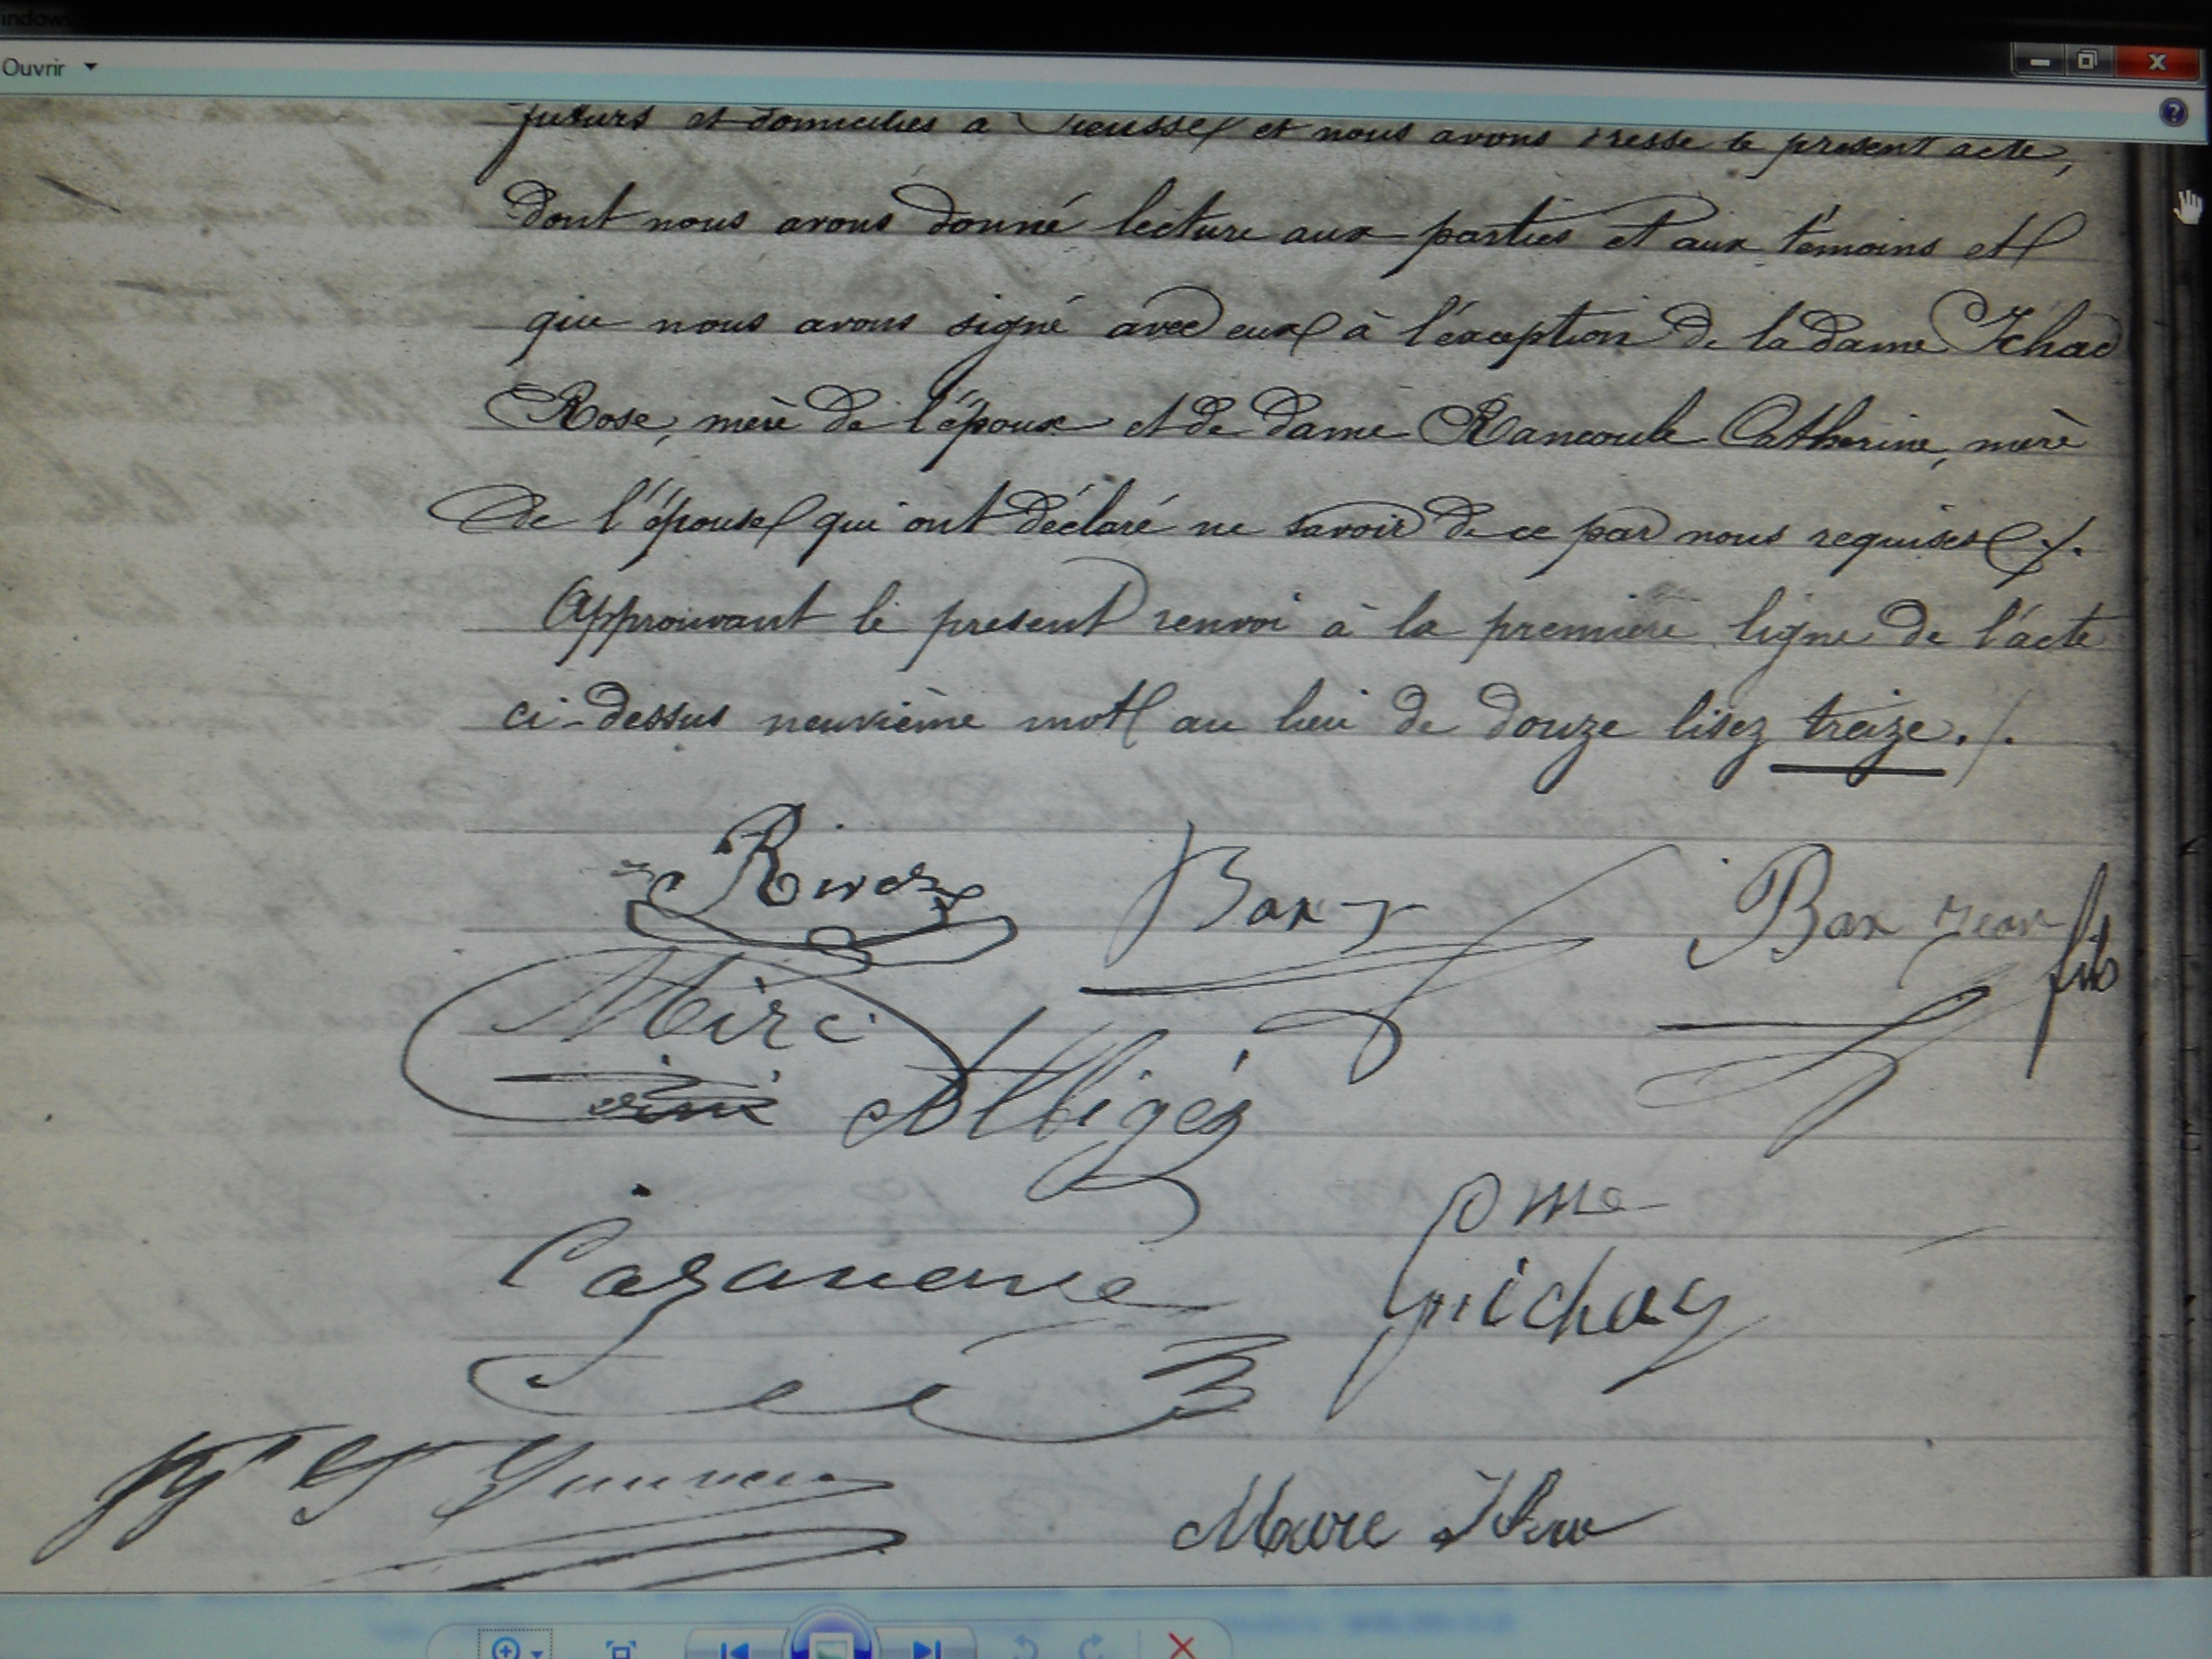 Ouvrir
futurs et domiciliés à et nous avons dressé le présent acte,
dont nous avons donné lecture aux parties et aux témoins et
que nous avons signé avec eux à l'éxception de la dame
Rose, mère de l'époux et de dame Rancoule Catherine, mère
de l'épouse qui ont déclaré ne savoir de ce par nous requises ./.
Approuvant le présent renvoi à la première ligne de l'acte
ci-dessus neuvième mot au lieu de douze lisez treize ./.
Rives Bax Bax Jean fils
Mire
Albigés
Cazaneuve